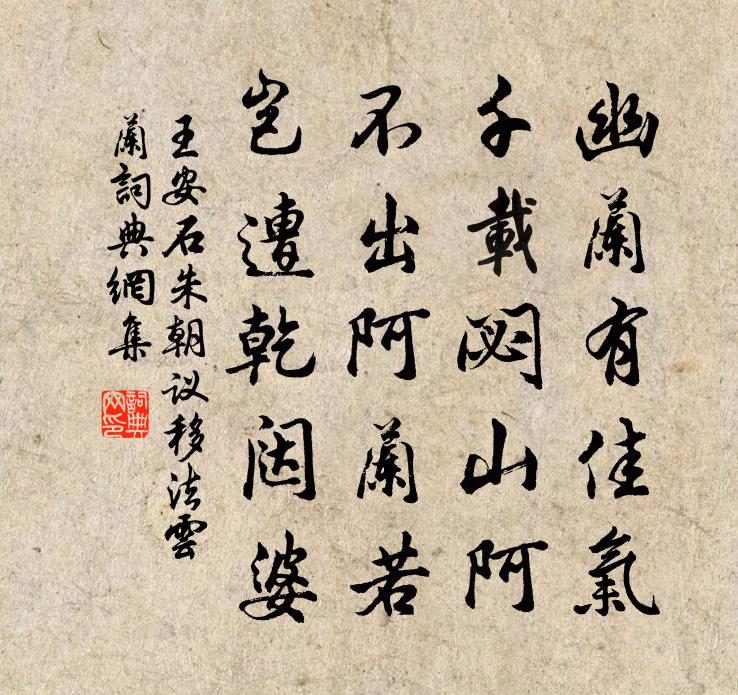 幽蘭有佳氣
千載閟山阿
不出阿蘭若
豈遭乾闼婆
王安石朱朝议移法雲
蘭詞典網集
詞典
网印